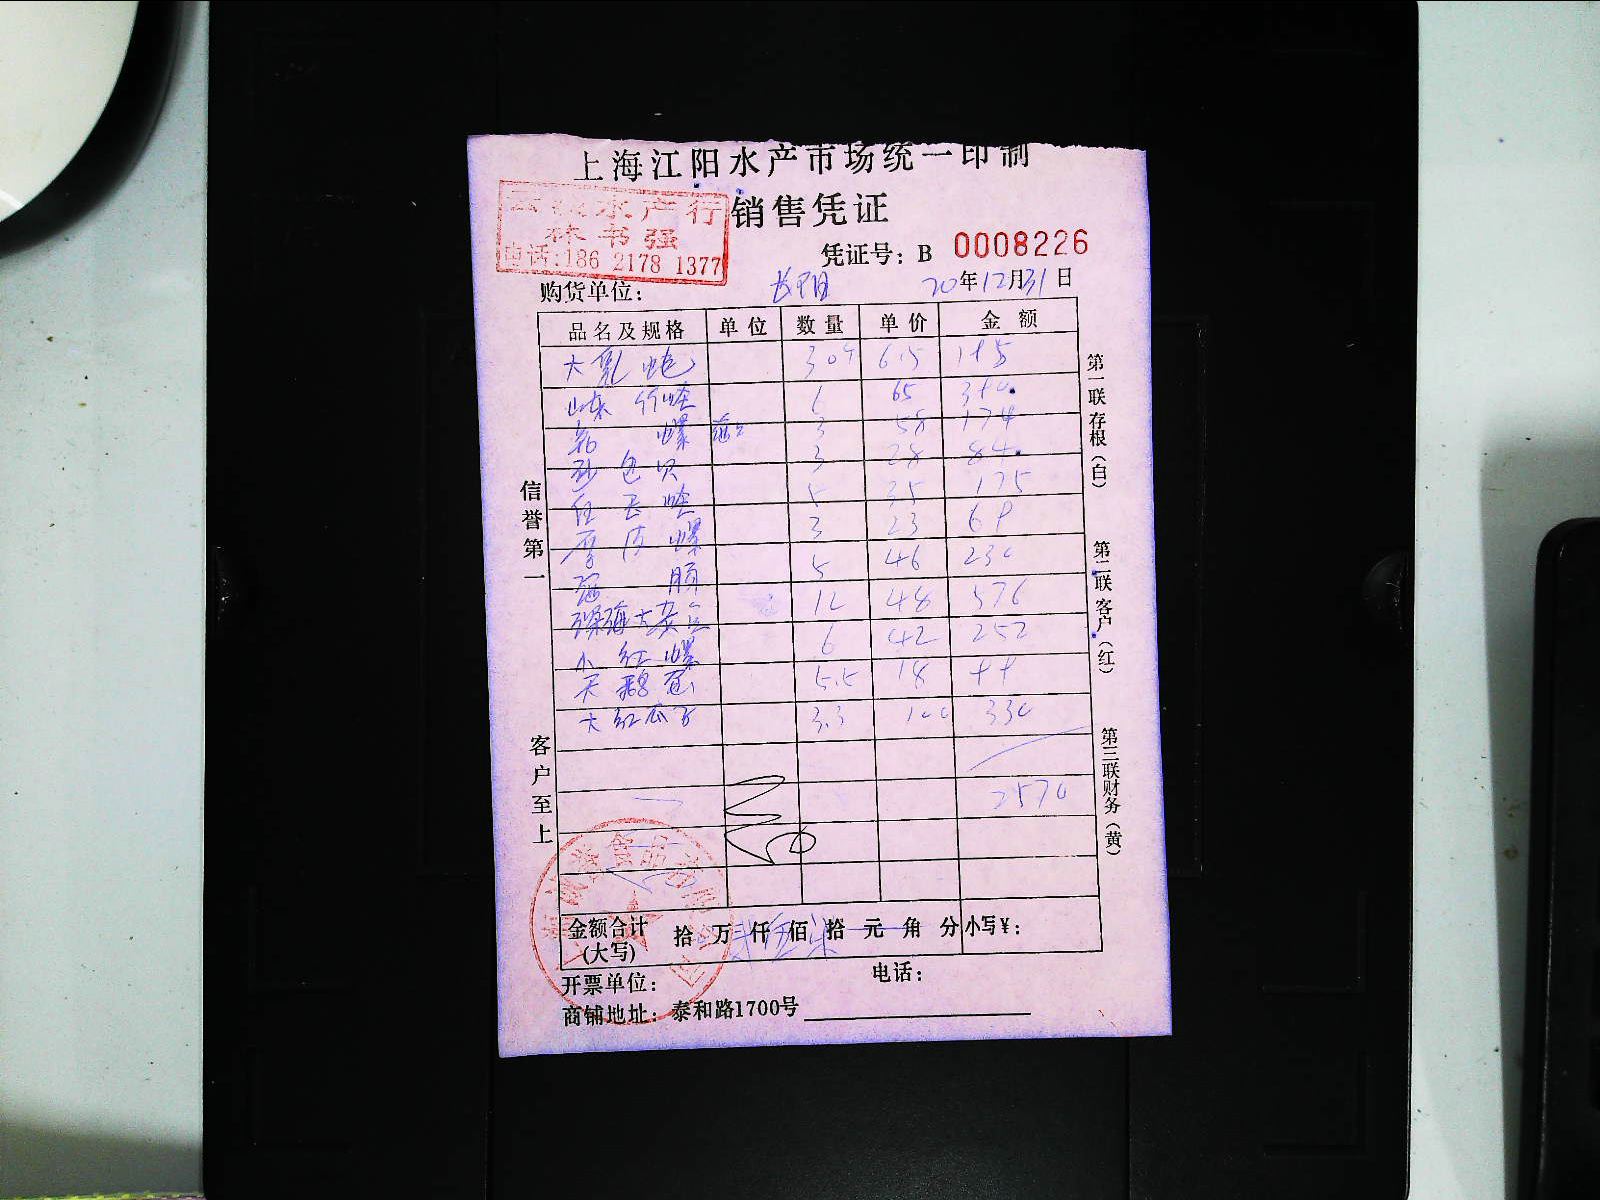 上海江阳水产市场统一印制
水产行
销售凭证
林书强
电话:186 2178 1377
凭证号: B 0008226
购货单位: 20年12月31日
品名及规格 单位 数量 单价 金额
大 鲍 30个 6.5 195
山东 竹蛏 6 65 390.
螺 3 58 174
砂包贝 3 28 84.
蛏 5 35 175
螺 3 23 69
5 46 230
深海大 12 48 576
小红螺 6 42 252
天鹅蛋 5.5 18 99
大红瓜子 3.3 100 330
2570
金额合计 (大写) 拾 万 贰 仟 伍 佰 柒 拾 元 角 分 小写¥:
开票单位: 电话:
商铺地址: 泰和路1700号
信誉第一
客户至上
第一联存根(白)
第二联客户(红)
第三联财务(黄)